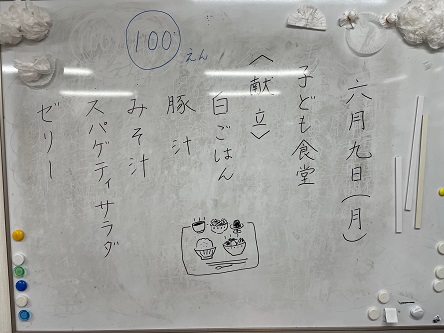 六月九日(月)
子ども食堂
〈献立〉
白ごはん
豚汁
みそ汁
スパゲティサラダ
ゼリー
100えん